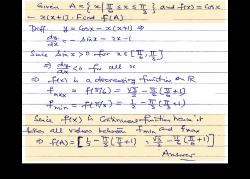 Given A = {x | π/6 ≤ x ≤ π/3} and f(x) = cos x
- x(x+1). Find f(A)
Diff y = cos x - x(x+1) ⇒
dy/dx = - sin x - 2x - 1
Since sin x > 0 for x ∈ [π/6, π/3]
⇒ dy/dx < 0 for all x
⇒ f(x) is a decreasing function on R
f max = f(π/6) = √3/2 - π/6 (π/6 + 1)
f min = f(π/3) = 1/2 - π/3 (π/3 + 1)
Since f(x) is continuous function hence it
takes all values between f min and f max
⇒ f(A) = [1/2 - π/3 (π/3 + 1), √3/2 - π/6 (π/6 + 1)]
Answer